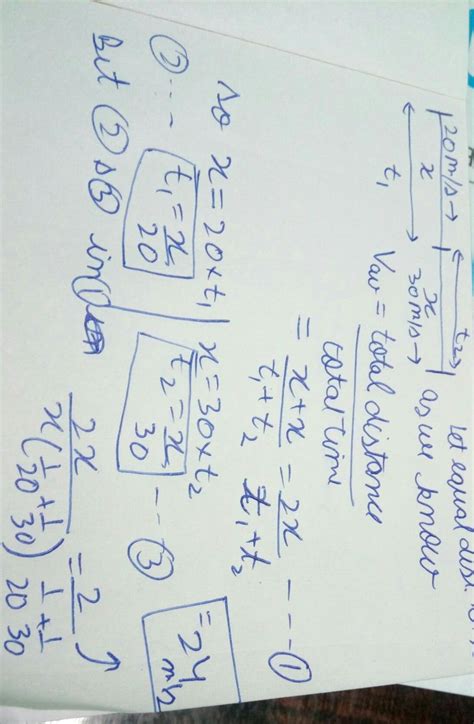 Let equal dist.
|20m/s→ x | x 30m/s→|
t₁ t₂ as we know
Vav = total distance / total time
= x+x / t₁+t₂ = 2x / t₁+t₂ ---- ①
so x = 20×t₁ | x = 30×t₂
②--- t₁ = x/20 | t₂ = x/30 --- ③
2x / x(1/20 + 1/30) = 2 / 1/20 + 1/30
= 24 m/s